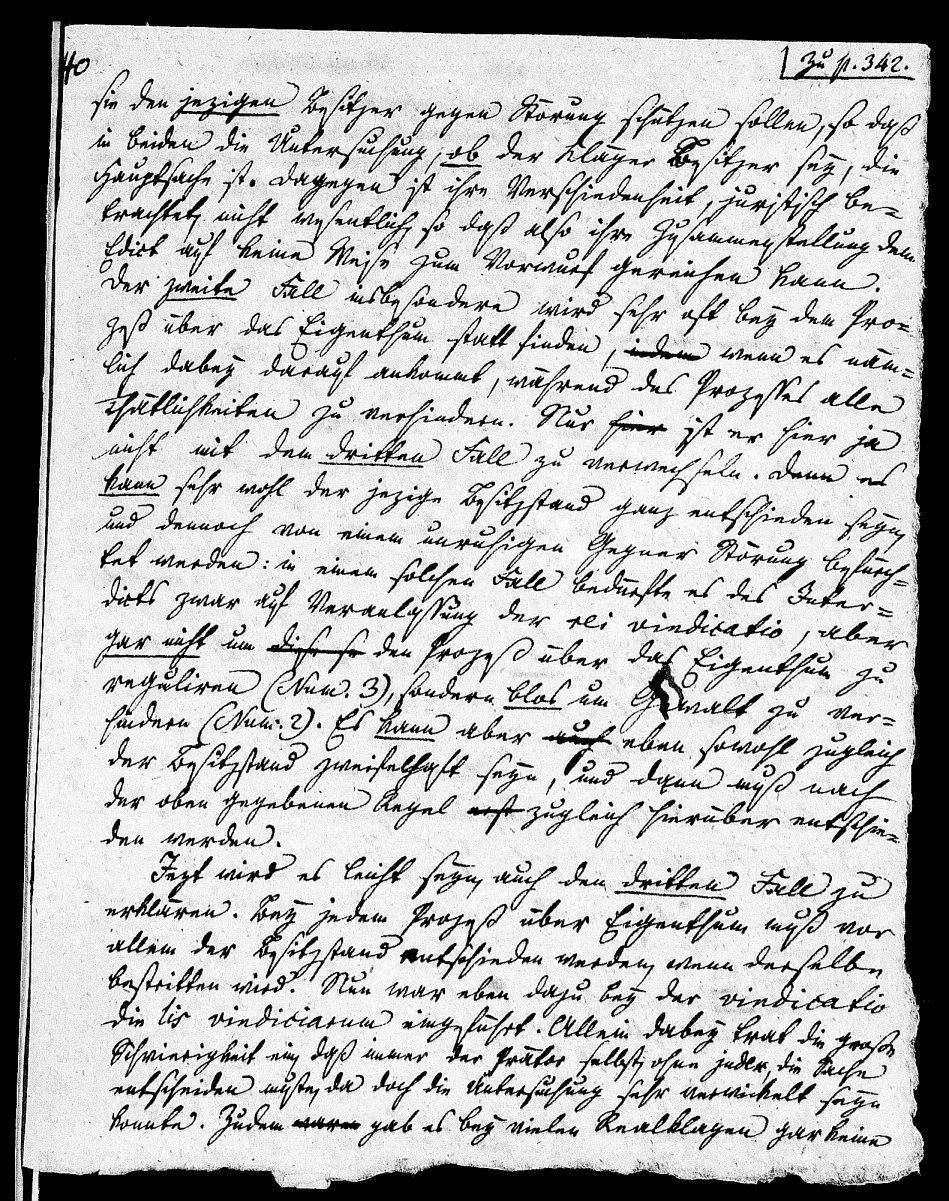 40
Zu p. 342.
sie den jezigen Besitzer gegen Störung schützen sollen, so daß
in beiden die Untersuchung, ob der Kläger Besitzer sey, die
Hauptsache ist. Dagegen ist ihre Verschiedenheit, juristisch be-
trachtet, nicht wesentlich, so daß also ihre Zusammenstellung dem
Edict auf keine Weise zum Vorwurf gereichen kann.
Der zweite Fall insbesondere wird sehr oft bey dem Pro-
zeß über das Eigenthum statt finden, indem wenn es näm-
lich dabey darauf ankommt, während des Prozesses alle
Thätlichkeiten zu verhindern. Nur hier ist er hier ja
nicht mit dem dritten Fall zu verwechseln. Denn es
kann sehr wohl der jezige Besitzstand ganz entschieden seyn,
und dennoch von einem unruhigen Gegner Störung befürch-
tet werden: in einem solchen Fall bedürfte es des Inter-
dicts zwar auf Veranlassung der rei vindicatio, aber
gar nicht um diese se den Prozeß über das Eigenthum zu
reguliren (Num. 3), sondern blos um Gewalt zu ver-
hindern (Num. 2). Es kann aber auch eben sowohl zugleich
der Besitzstand zweifelhaft seyn, und dann muß nach
der oben gegebenen Regel erst zugleich hierüber entschie-
den werden.
Jezt wird es leicht seyn, auch den dritten Fall zu
erklären. Bey jedem Prozeß über Eigenthum muß vor
allem der Besitzstand entschieden werden, wenn derselbe
bestritten wird. Nun war eben dazu bey der vindicatio
die lis vindiciarum eingeführt. Allein dabey trat die große
Schwierigkeit ein, daß immer der Prätor selbst, ohne judex, die Sache
entscheiden muste, da doch die Untersuchung sehr verwickelt seyn
konnte. Zudem waren gab es bey vielen Realklagen gar keine